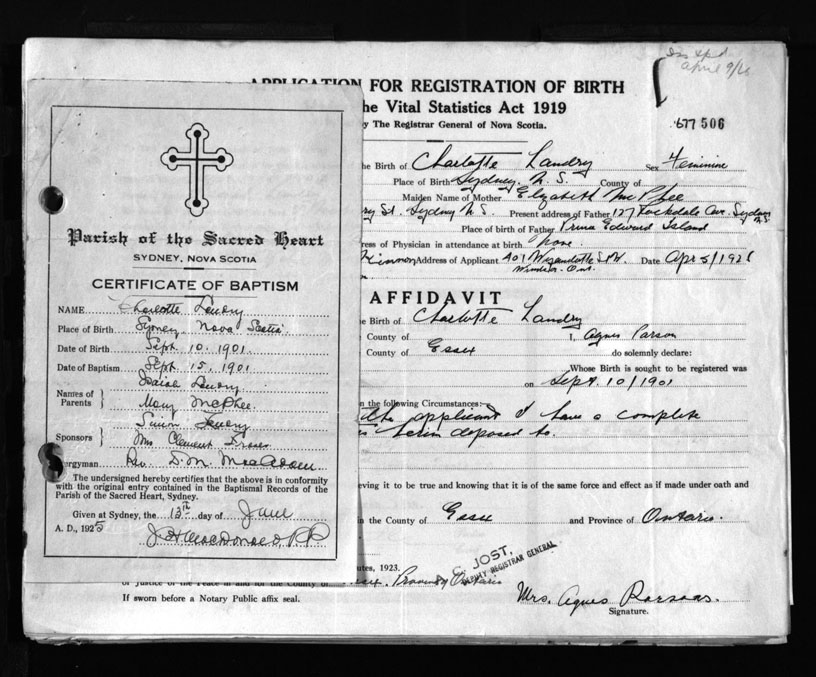 Parish of the Sacred Heart
SYDNEY, NOVA SCOTIA
CERTIFICATE OF BAPTISM
NAME Charlotte Landry
Place of Birth Sydney Nova Scotia
Date of Birth Sept. 10. 1901
Date of Baptism Sept. 15. 1901
Isaiah Landry
Names of
Parents
Mary McPhee
Simon Landry
Sponsors
Mrs Clement
ergyman Rev. D.M. MacAdam
The undersigned hereby certifies that the above is in conformity
with the original entry contained in the Baptismal Records of the
Parish of the Sacred Heart, Sydney.
Given at Sydney, the 13th day of June
A. D., 1925
J H MacDonald P.P.
April 9/26
APPLICATION FOR REGISTRATION OF BIRTH
he Vital Statistics Act 1919
y The Registrar General of Nova Scotia.
677 506
he Birth of Charlotte Landry Sex Feminine
Place of Birth Sydney. N. S. County of
Maiden Name of Mother Elizabeth McPhee
St. Sydney N.S. Present address of Father 127 Rockdale Ave. Sydney N.S.
Place of birth of Father Prince Edward Island
ress of Physician in attendance at birth None
Kinnon Address of Applicant 401 Wyandotte St W. Date Apr 5/1926
Windsor. Ont.
AFFIDAVIT
e Birth of Charlotte Landry
County of I, Agnes Parson
County of Essex do solemnly declare:
Whose Birth is sought to be registered was
on Sept. 10/1901
n the following Circumstances:—
the applicant & have a complete
herein deposed to.
eving it to be true and knowing that it is of the same force and effect as if made under oath and
n the County of Essex and Province of Ontario.
JOST,
DEPUTY REGISTRAR GENERAL
utes, 1923.
of Justice of the Peace in and for the County of Essex, Province of Ontario
If sworn before a Notary Public affix seal.
Mrs. Agnes Parsons.
Signature.